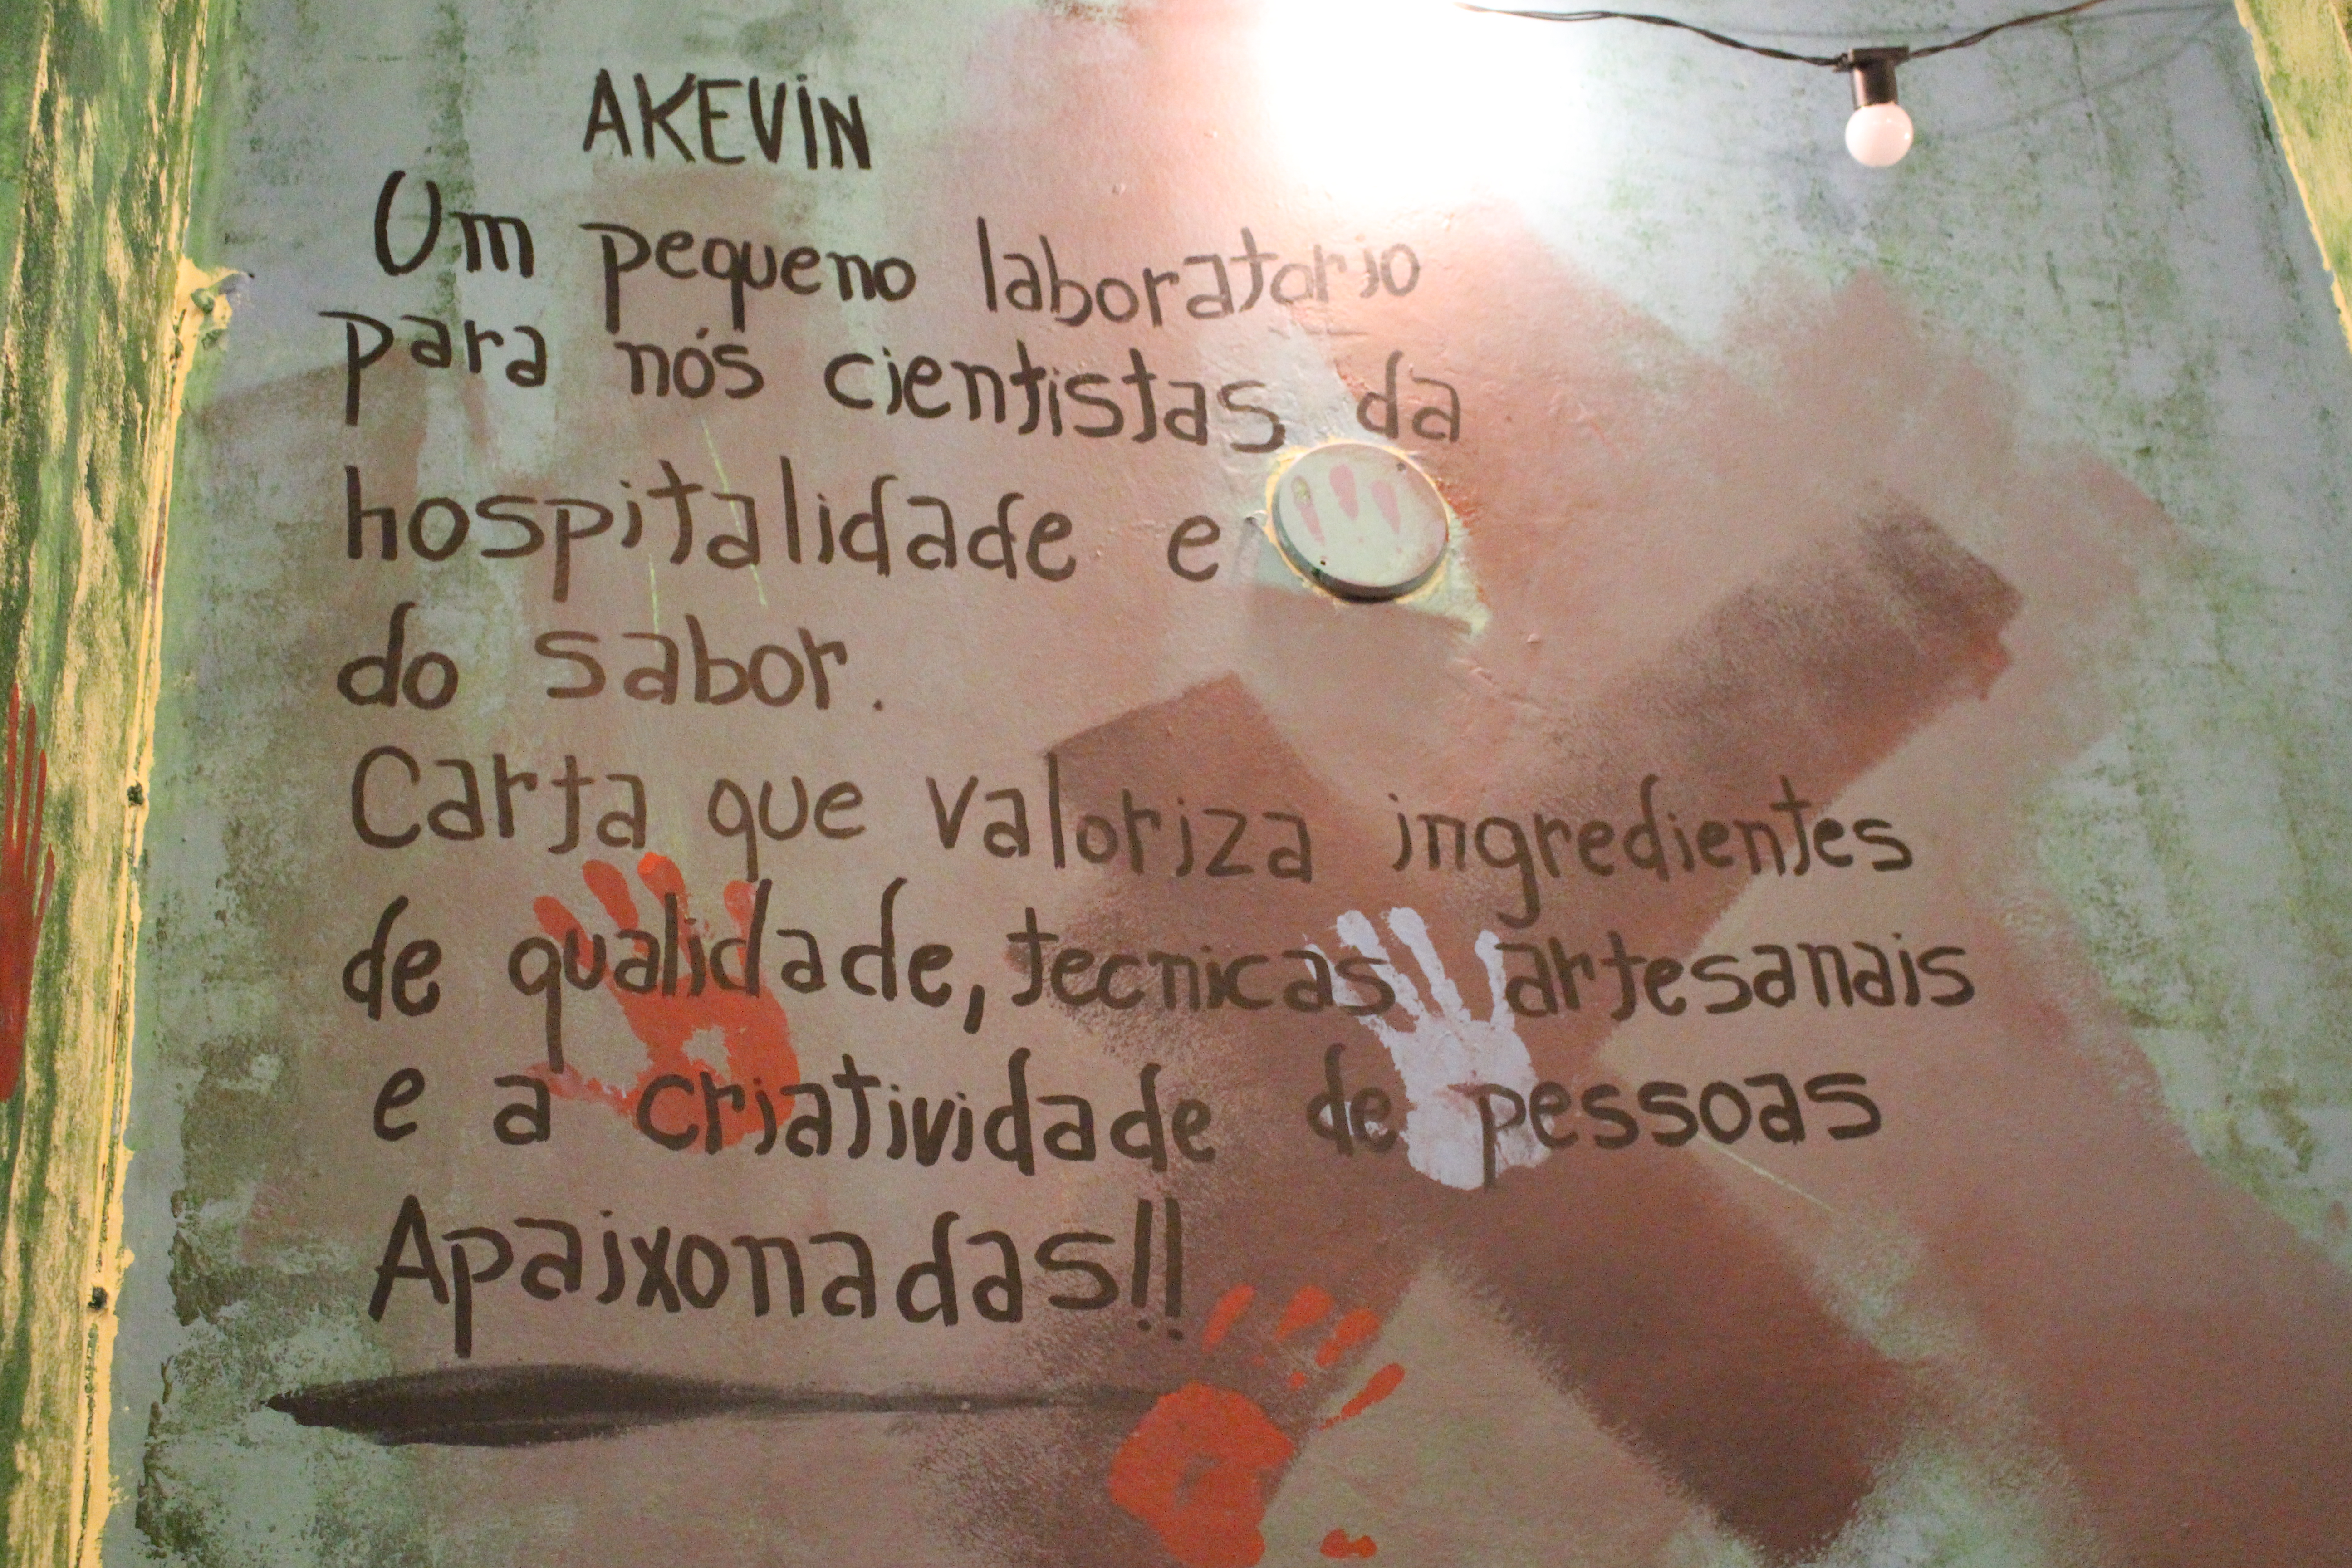 AKEVIN
Um pequeno laboratorio
para nós cientistas da
hospitalidade e
do sabor.
Carta que valoriza ingredientes
de qualidade, tecnicas artesanais
e a criatividade de pessoas
Apaixonadas!!